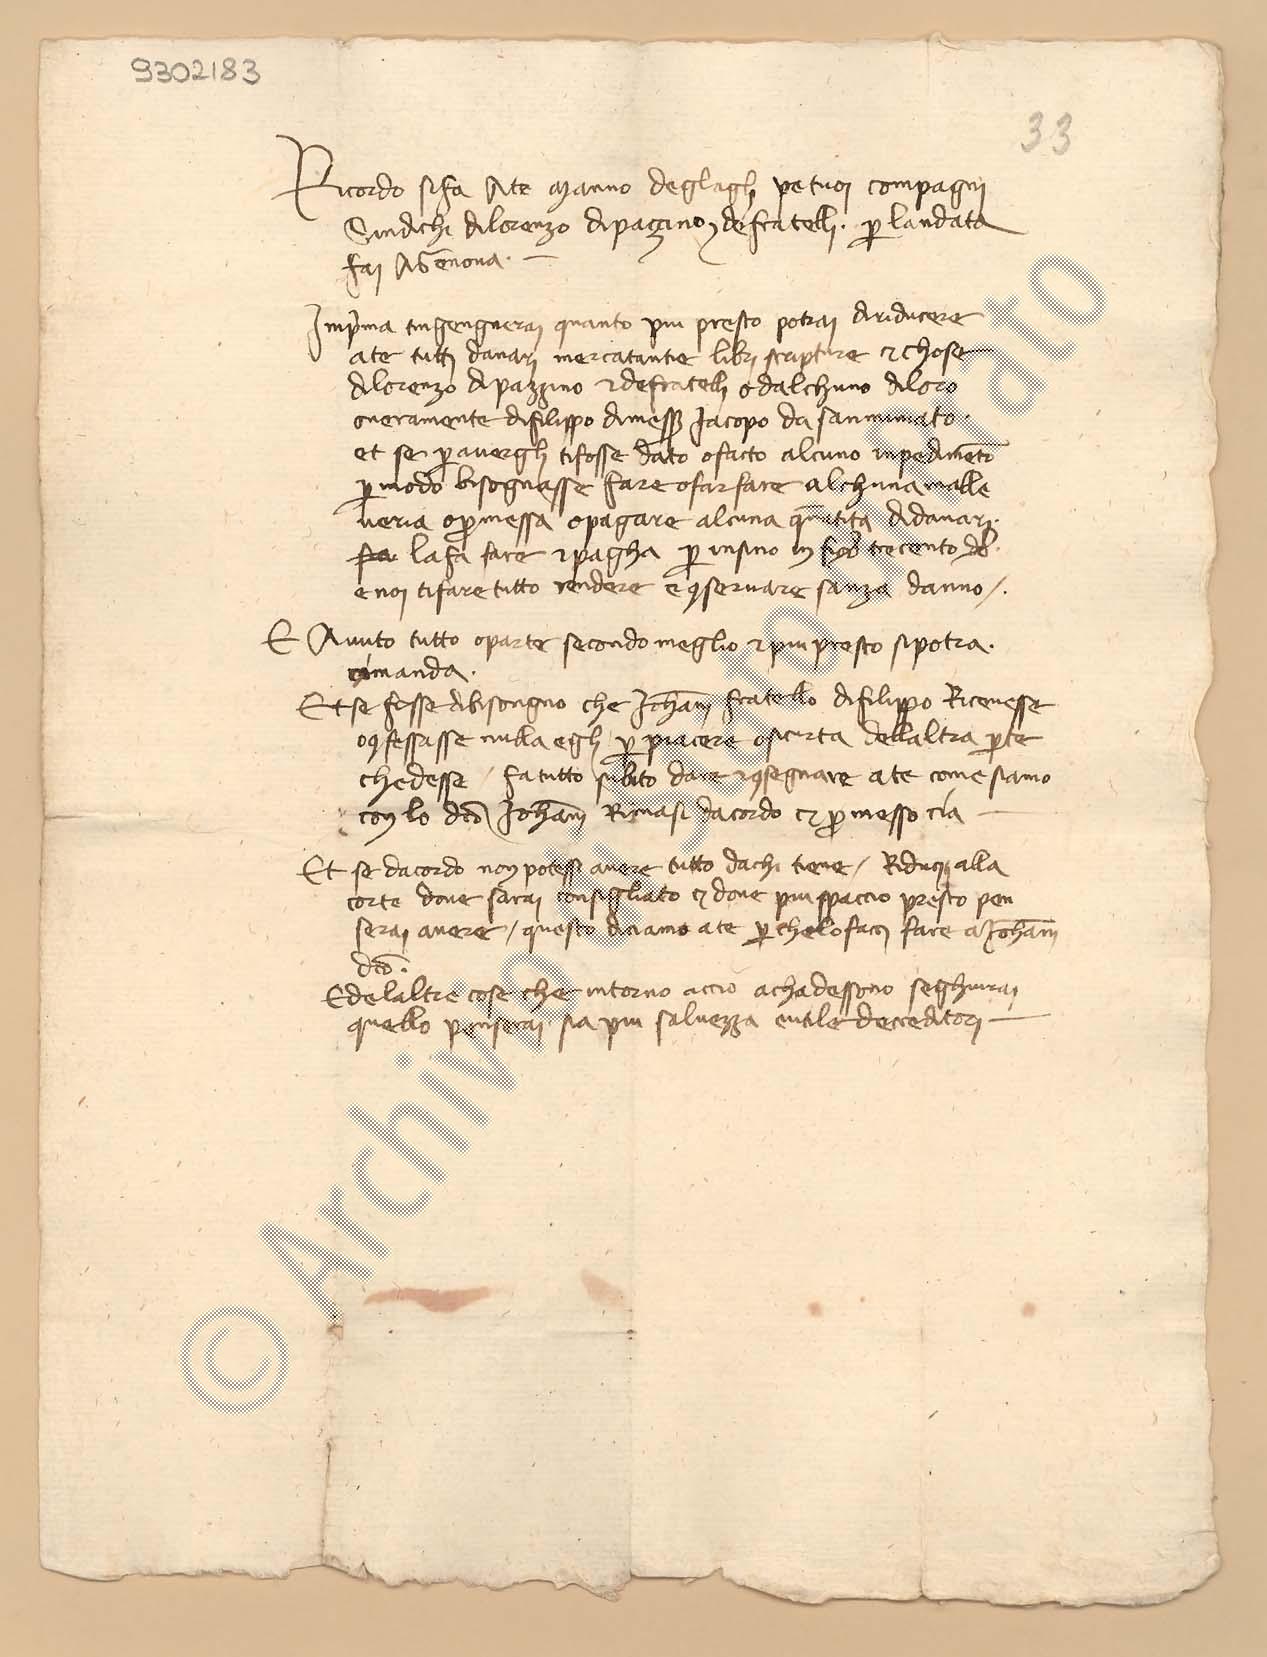 9302183
33
Ricordo si fa Ate Manno deglaglj pe tuoj compagnj
Sindichi dilorenzo dipazzino ⁊ defratelli. p landata
faj AGenova. —
Imprima tingengneraj quanto piu presto potraj diriducere
ate tuttj danarj mercatantie librj scripture et chose
dilorenzo dipazzino ⁊ defratellj o dalchuno diloro
overamente difilippo dimess Jacopo da sanminiato.
et se p averglj tifosse dato o facto alcuno inpedimeto
p modo bisognasse fare o farfare alchuna malle
veria o pmessa o pagare alcuna quatita didanarj.
lafa fare ⁊ pagha p insino in trecento
e noi tifare tutto rendere e 9servare sanza danno /.
E Avuto tutto o parte secondo meglio ⁊ piu presto sipotra.
cimanda.
Et se fosse dibisongno che Johanj fratello difilippo Ricevesse
o 9fessasse nulla eglj p piacere o sicurta dellaltra pte
chedesse / fa tutto subito dare ⁊ 9segnare ate come siamo
con lo dco Johanj Rimasi dacordo et pmesso cia —
Et se dacordo non potessi avere tutto dachi tiene / Riducj alla
corte dove sarai consigliato et dove piu spaccio presto pen
serai avere / questo diciamo ate p chelo faccj fare a Johanj
dco.
E delaltre cose che intorno accio achadessono seghuiraj
quello penserai sia piu salvezza e utile decreditori —
© Archivio di Stato di Prato